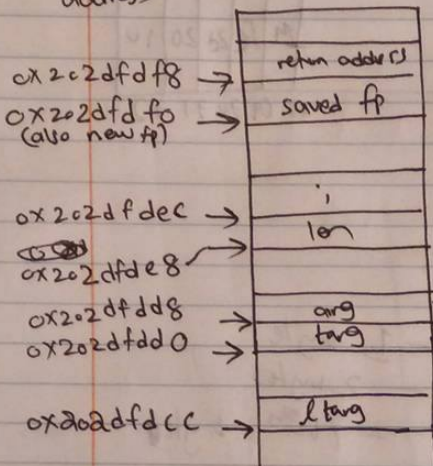 0x2c2dfdf8 → return address
0x202dfdf0 → saved fp
(also new fp)
0x2c2dfdec → i
len
0x202dfde8
0x202dfdd8 → arg
0x202dfdd0 → targ
0x202dfdcc → ltarg